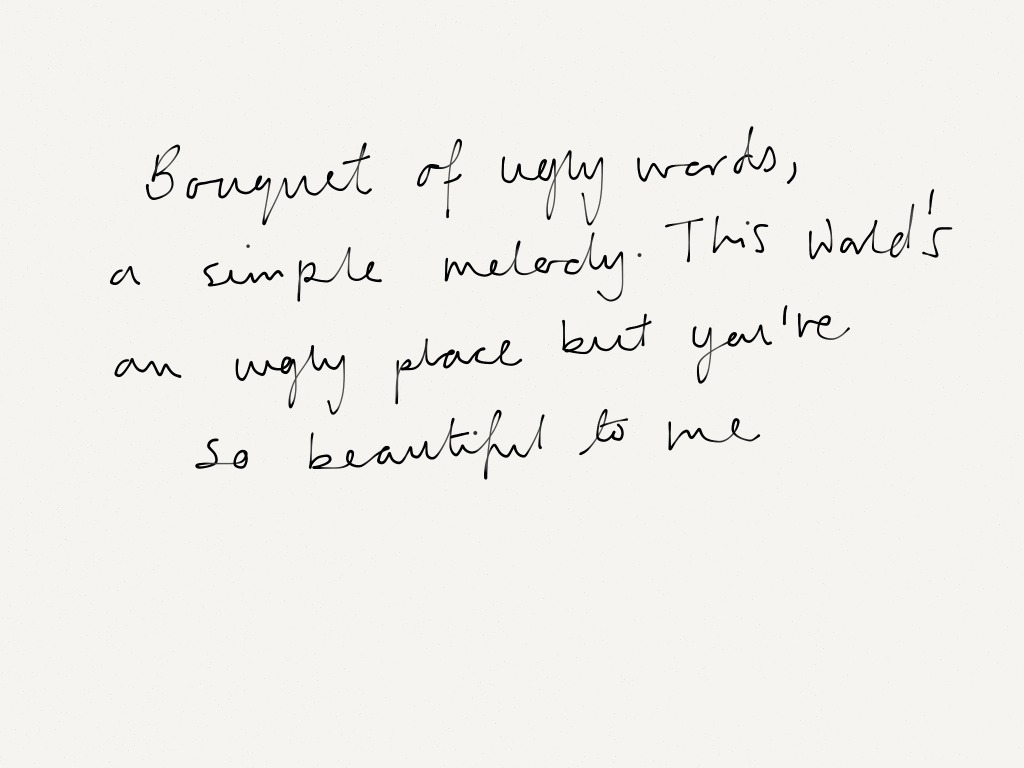 Bouquet of ugly words,
a simple melody. This world's
an ugly place but you're
so beautiful to me